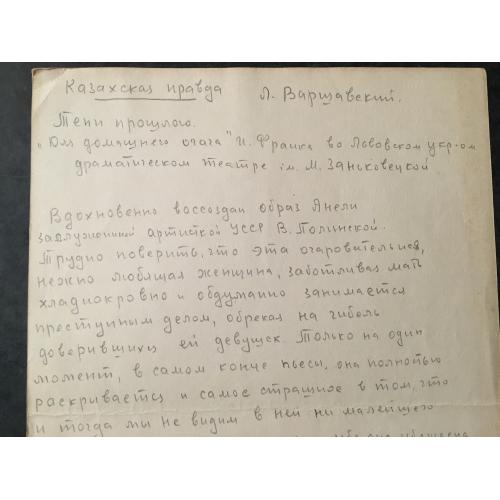 Казахская правда Л. Варшавский.
Тени прошлого.
"Для домашнего очага" И. Франка во Львовском укр-ом
драматическом театре ім. М. Заньковецкой
Вдохновенно воссоздан образ Анели
заслуженной артисткой УССР В. Полинской.
Трудно поверить, что эта очаровательная,
нежно любящая женщина, заботливая мать
хладнокровно и обдуманно занимается
преступным делом, обрекая на гибель
доверившихся ей девушек. Только на один
момент, в самом конце пьесы, она полностью
раскрывается и самое страшное в том, что
и тогда мы не видим в ней ни малейшего